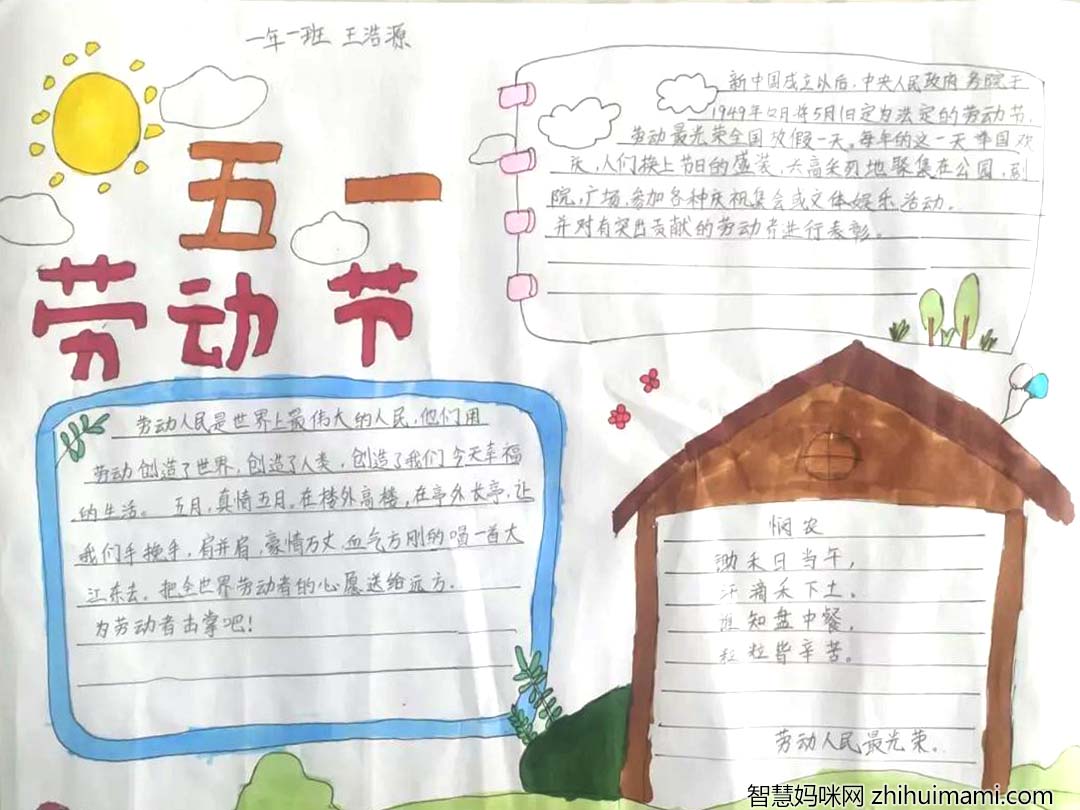 一年一班 王浩源
五一
劳动节
新中国成立以后,中央人民政府务院于
1949年12月将5月1日定为法定的劳动节,
劳动最光荣全国放假一天。每年的这一天举国欢
庆,人们换上节日的盛装,兴高采烈地聚集在公园,剧
院,广场,参加各种庆祝集会或文体娱乐活动。
并对有突出贡献的劳动者进行表彰。
劳动人民是世界上最伟大的人民,他们用
劳动创造了世界,创造了人类,创造了我们今天幸福
的生活。五月,真情五月。在楼外高楼,在亭外长亭,让
我们手挽手,肩并肩,豪情万丈,血气方刚的唱一首大
江东去。把全世界劳动者的心愿送给远方.
为劳动者击掌吧!
悯农
锄禾日当午,
汗滴禾下土。
谁知盘中餐,
粒粒皆辛苦。
劳动人民最光荣.
智慧妈咪网 zhihuimami.com